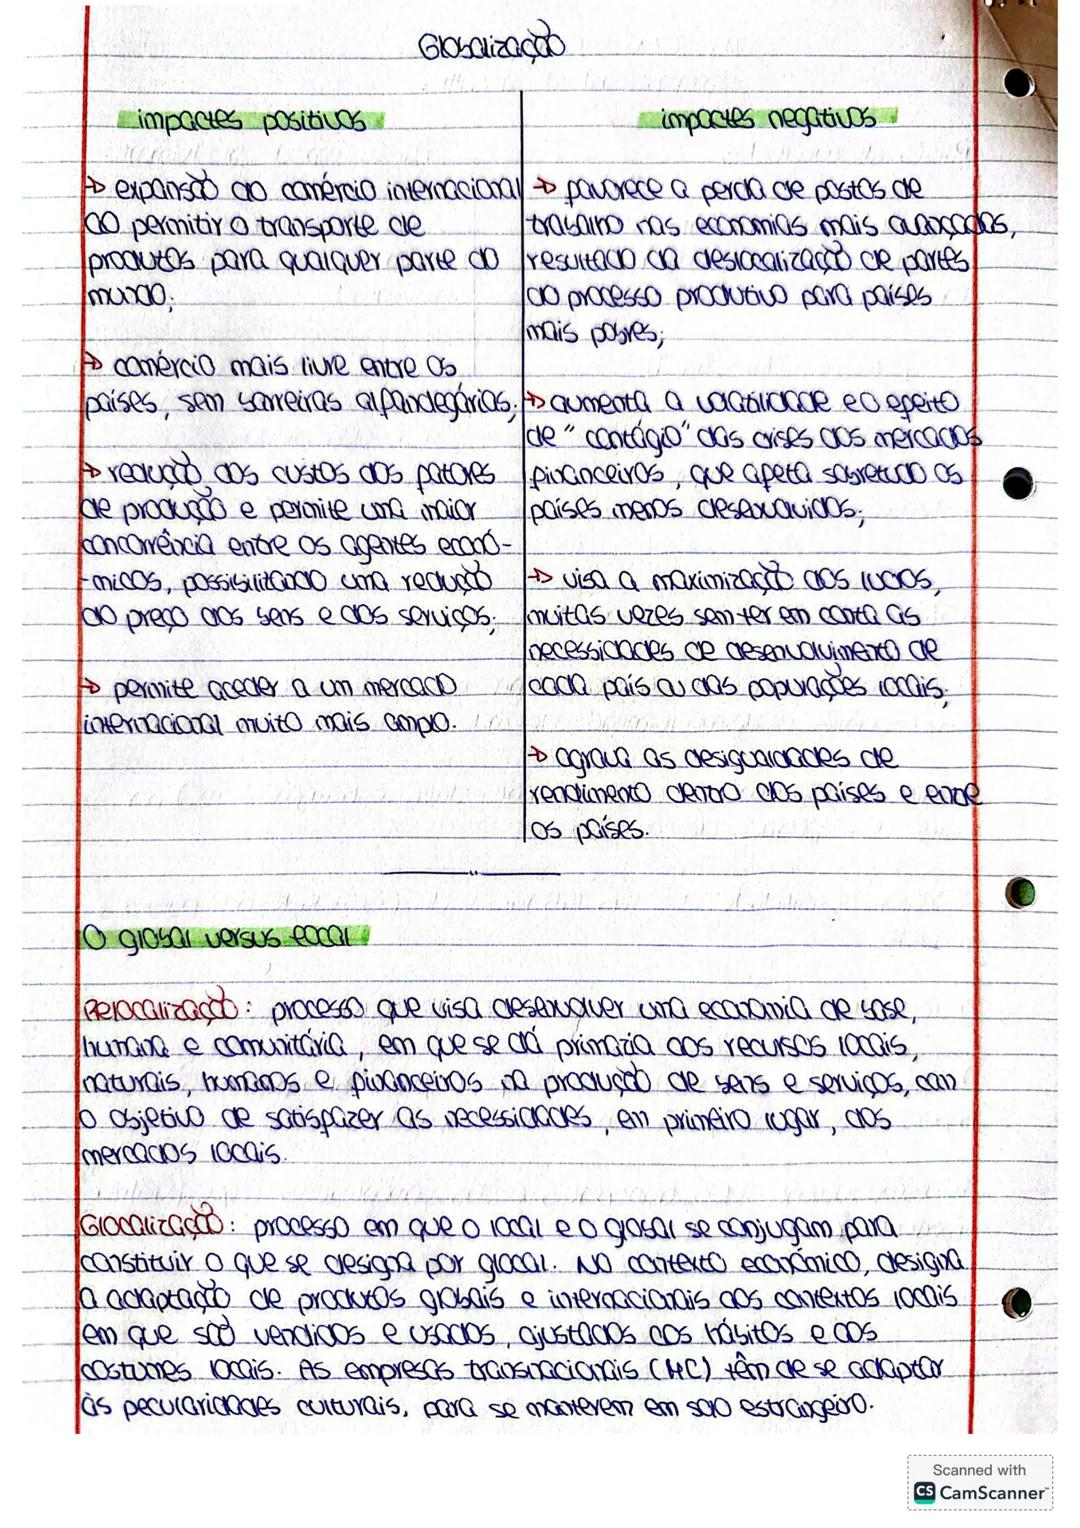 Globalização
impactes positivos
→ expansão do comércio internacional
ao permitir o transporte de
produtos para qualquer parte do
mundo;
→ comércio mais livre entre os
países, sem barreiras alfandegárias;
→ redução dos custos dos fatores
de produção e permite uma maior
concorrência entre os agentes econó-
-micos, possibilitando uma redução
do preço dos bens e dos serviços;
→ permite aceder a um mercado
internacional muito mais amplo.
impactes negativos
→ favorece a perda de postos de
trabalho nas economias mais avançadas,
resultado da deslocalização de partes
do processo produtivo para países
mais pobres;
→ aumenta a volatilidade e o efeito
de "contágio" das crises dos mercados
financeiros, que afeta sobretudo os
países menos desenvolvidos;
→ visa a maximização dos lucros,
muitas vezes sem ter em conta as
necessidades de desenvolvimento de
cada país ou das populações locais;
→ agrava as desigualdades de
rendimento dentro dos países e entre
os países.
O global versus local
Relocalização: processo que visa desenvolver uma economia de base,
humana e comunitária, em que se dá primazia aos recursos locais,
naturais, humanos e financeiros na produção de bens e serviços, com
o objetivo de satisfazer as necessidades, em primeiro lugar, dos
mercados locais.
Glocalização: processo em que o local e o global se conjugam para
constituir o que se designa por glocal. No contexto económico, designa
a adaptação de produtos globais e internacionais aos contextos locais
em que são vendidos e usados, ajustados aos hábitos e aos
costumes locais. As empresas transnacionais (HC) têm de se adaptar
às peculiaridades culturais, para se manterem em solo estrangeiro.
Scanned with
CS CamScanner